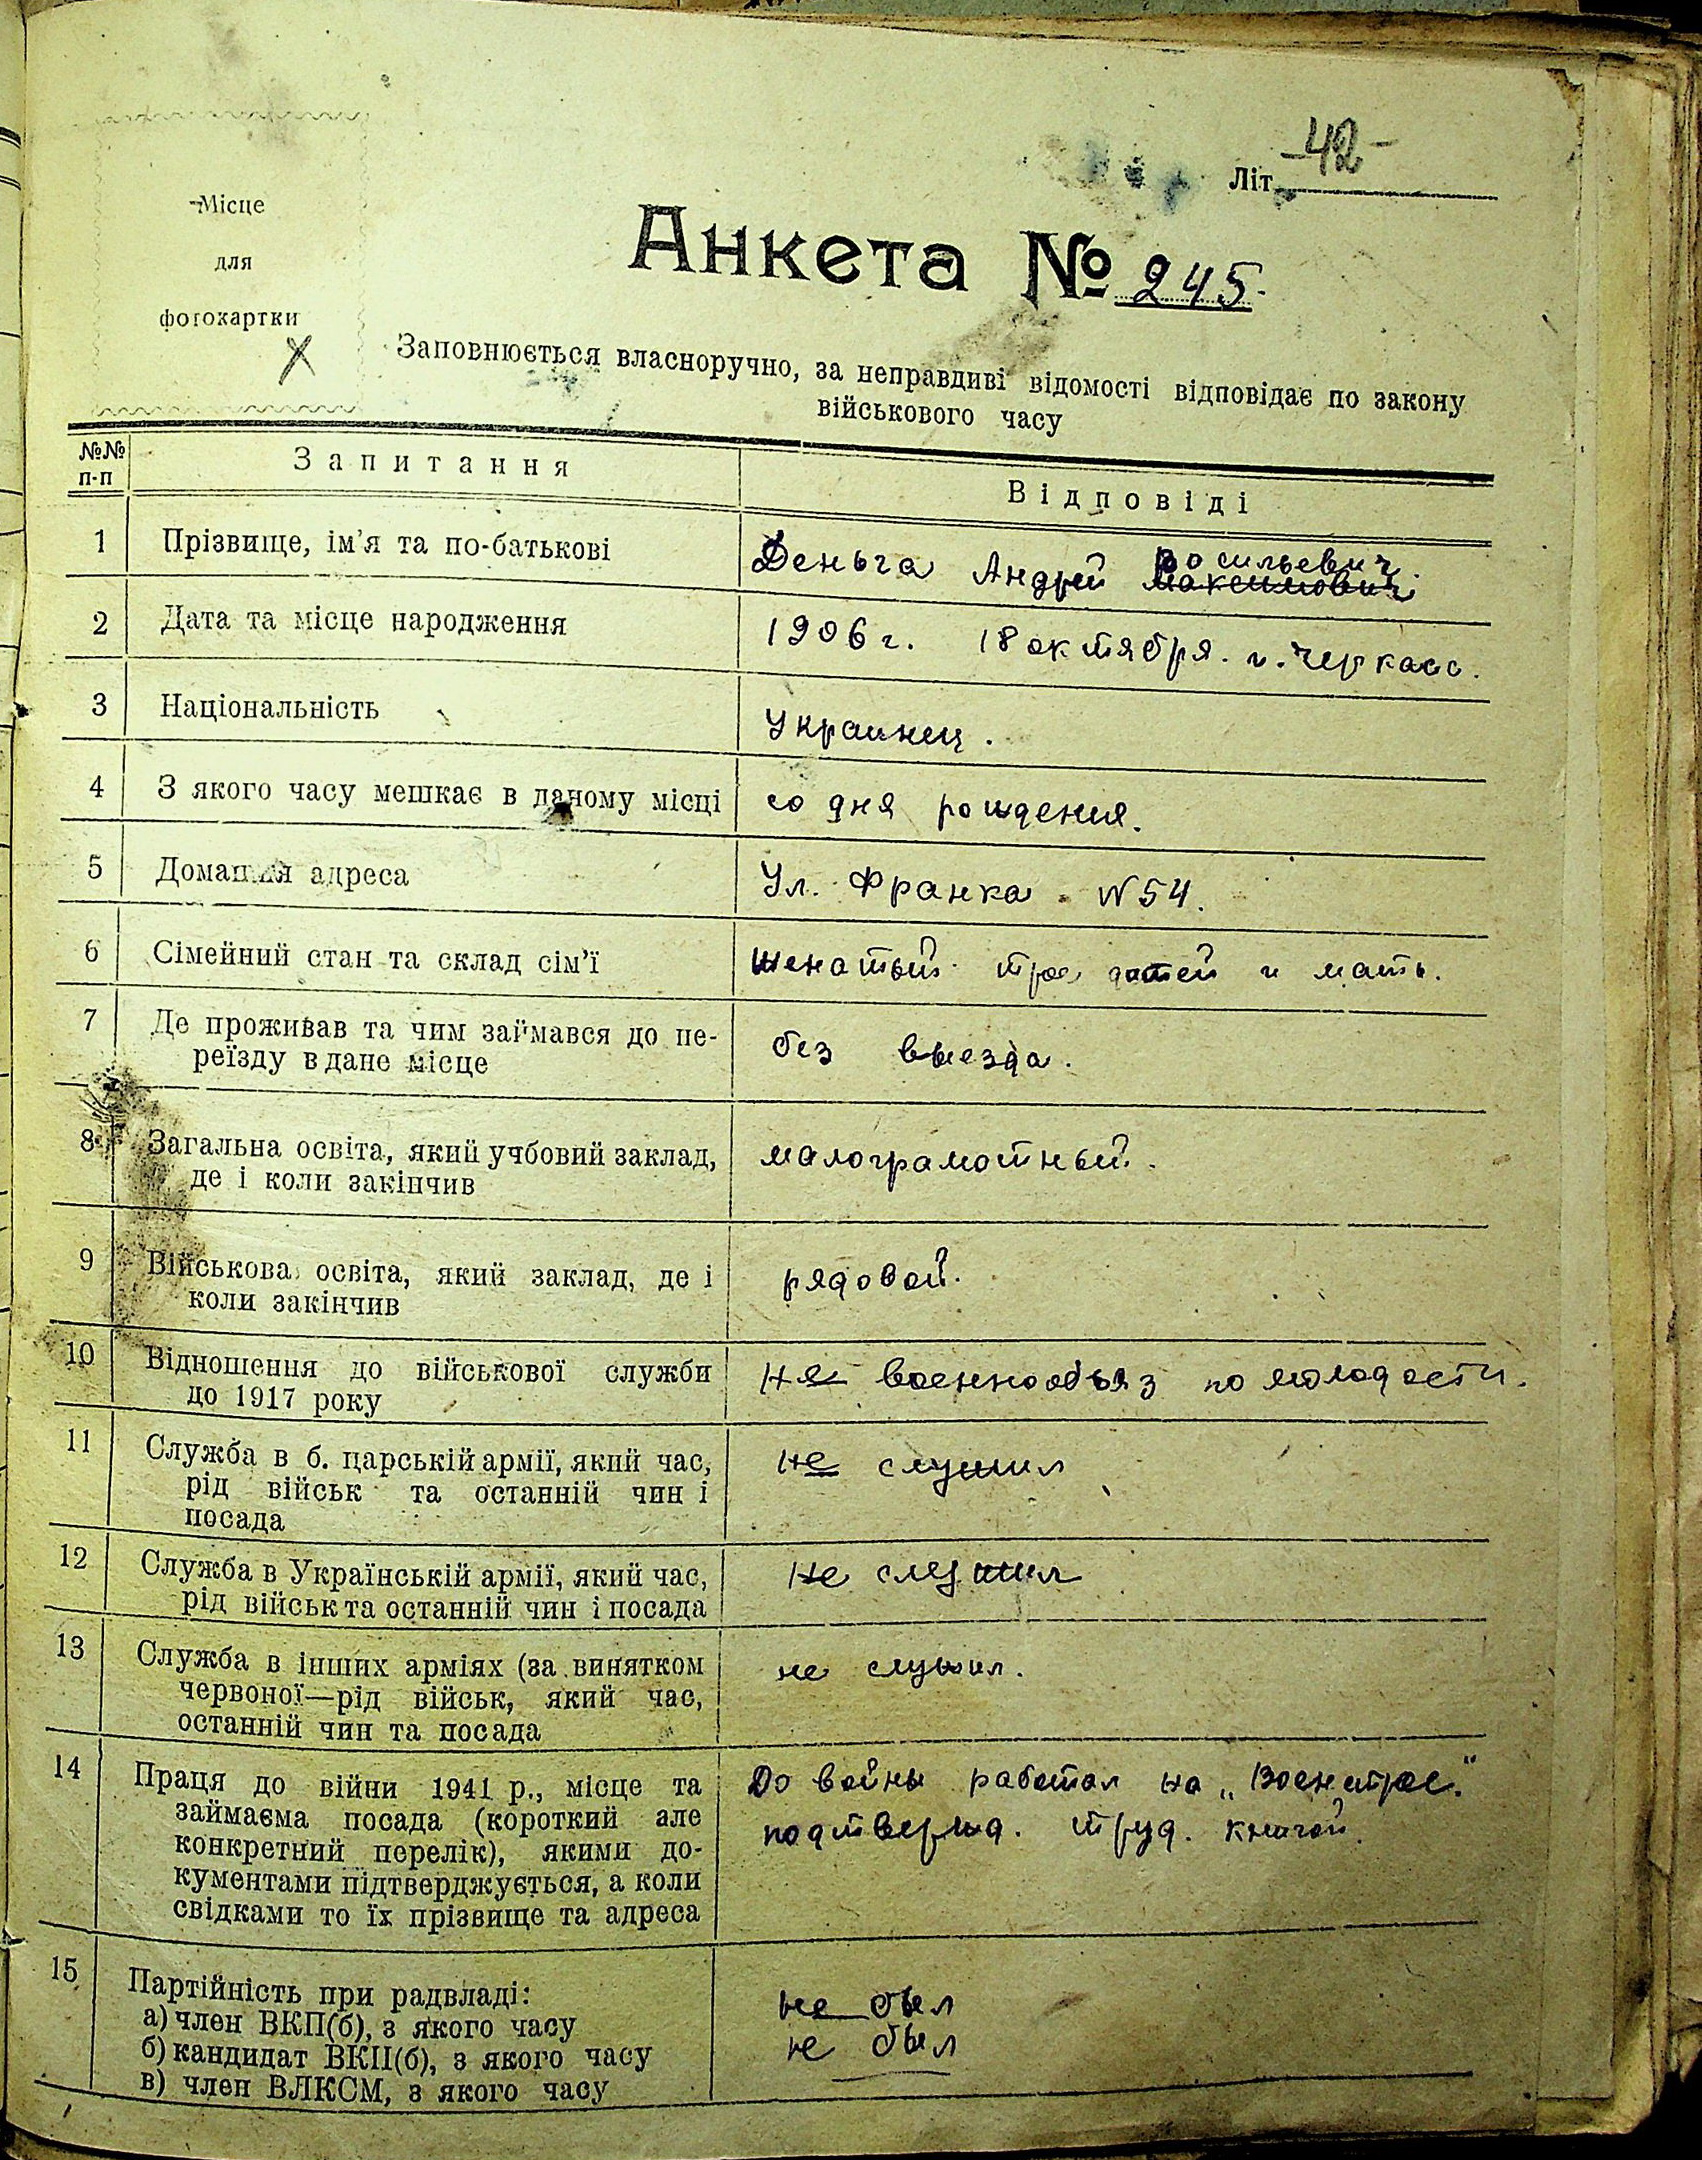 -42-
Літ.
Місце
для
фотокартки
Анкета № 245.
Заповнюється власноручно, за неправдиві відомості відповідає по закону
військового часу
№№
п-п
Запитання
Відповіді
1 Прізвище, ім'я та по-батькові
Деньга Андрей Васильевич.
Максимович
2 Дата та місце народження
1906 г. 18 октября. г. Черкасс.
3 Національність
Украинец.
4 З якого часу мешкає в даному місці
со дня рождения.
5 Домашня адреса
Ул. Франка. N 54.
6 Сімейний стан та склад сім'ї
женатый трое детей и мать.
7 Де проживав та чим займався до пе-
реїзду в дане місце
без выезда.
8 Загальна освіта, який учбовий заклад,
де і коли закінчив
малограмотный.
9 Військова освіта, який заклад, де і
коли закінчив
рядовой.
10 Відношення до військової служби
до 1917 року
не военнообяз по молодости.
11 Служба в б. царській армії, який час,
рід військ та останній чин і
посада
не служил
12 Служба в Українській армії, який час,
рід військ та останній чин і посада
не служил
13 Служба в інших арміях (за винятком
червоної—рід військ, який час,
останній чин та посада
не служил.
14 Праця до війни 1941 р., місце та
займаєма посада (короткий але
конкретний перелік), якими до-
кументами підтверджується, а коли
свідками то їх прізвище та адреса
До войны работал на
подтвержд. труд. книгой.
15 Партійність при радвладі:
а) член ВКП(б), з якого часу
б) кандидат ВКП(б), з якого часу
в) член ВЛКСМ, з якого часу
не был
не был